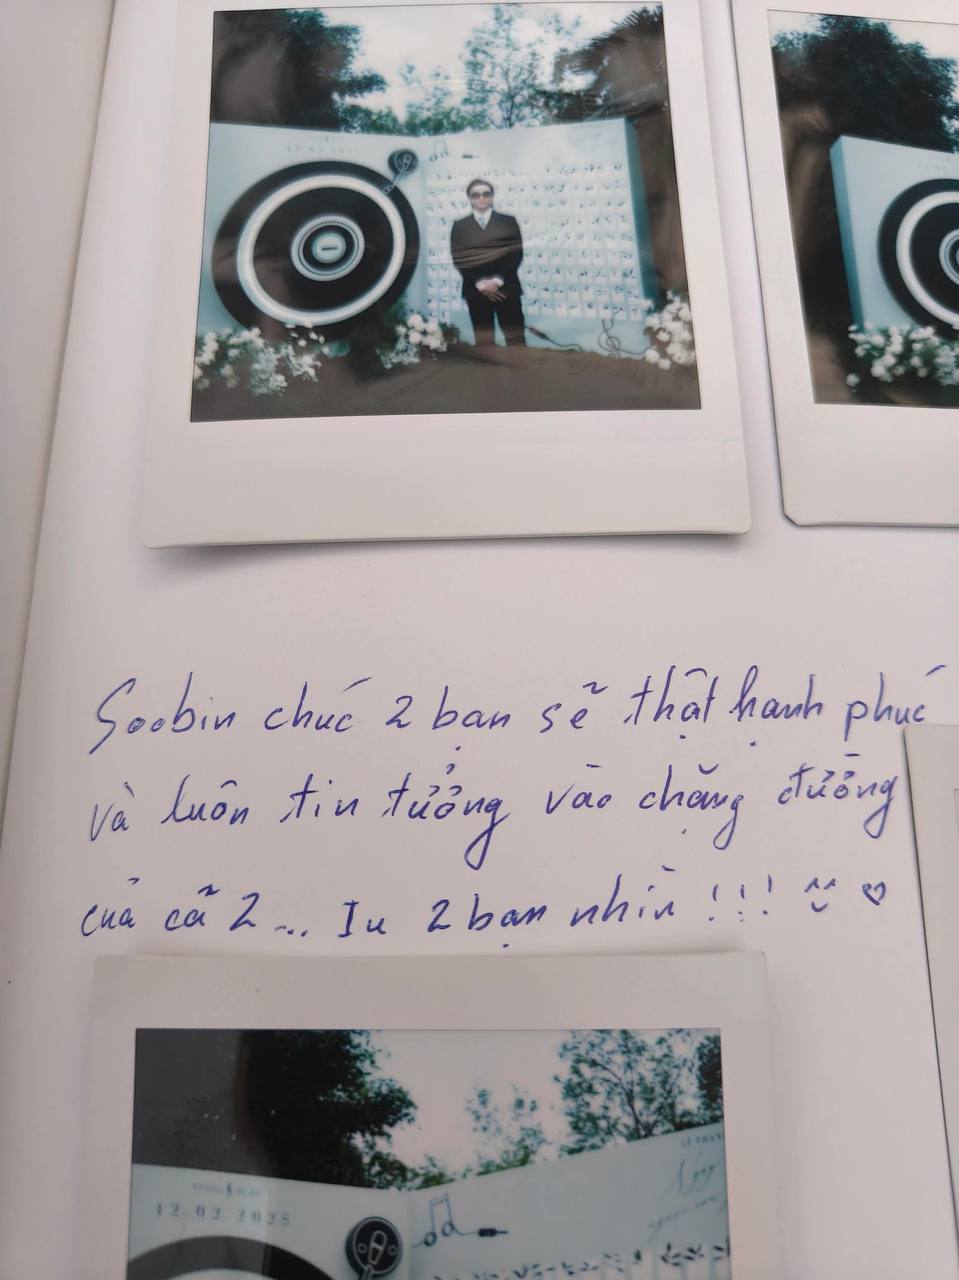 12.02.2025
Soobin chúc 2 bạn sẽ thật hạnh phúc
và luôn tin tưởng vào chặng đường
của cả 2... Iu 2 bạn nhìn !!! ♡
12.02.2025